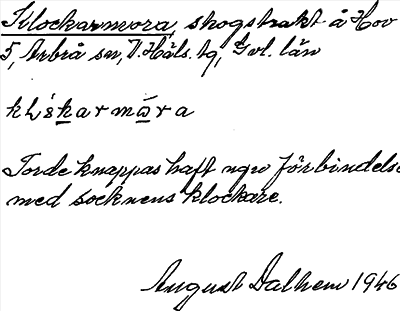 Klockarmora, skogstrakt å Hov
5, Arbrå sn, V. Häls. tg, Gvl. län
klòkarmɷ̀ra
Torde knappas haft ngn förbindelse
med socknens klockare.
August Dalhem 1946